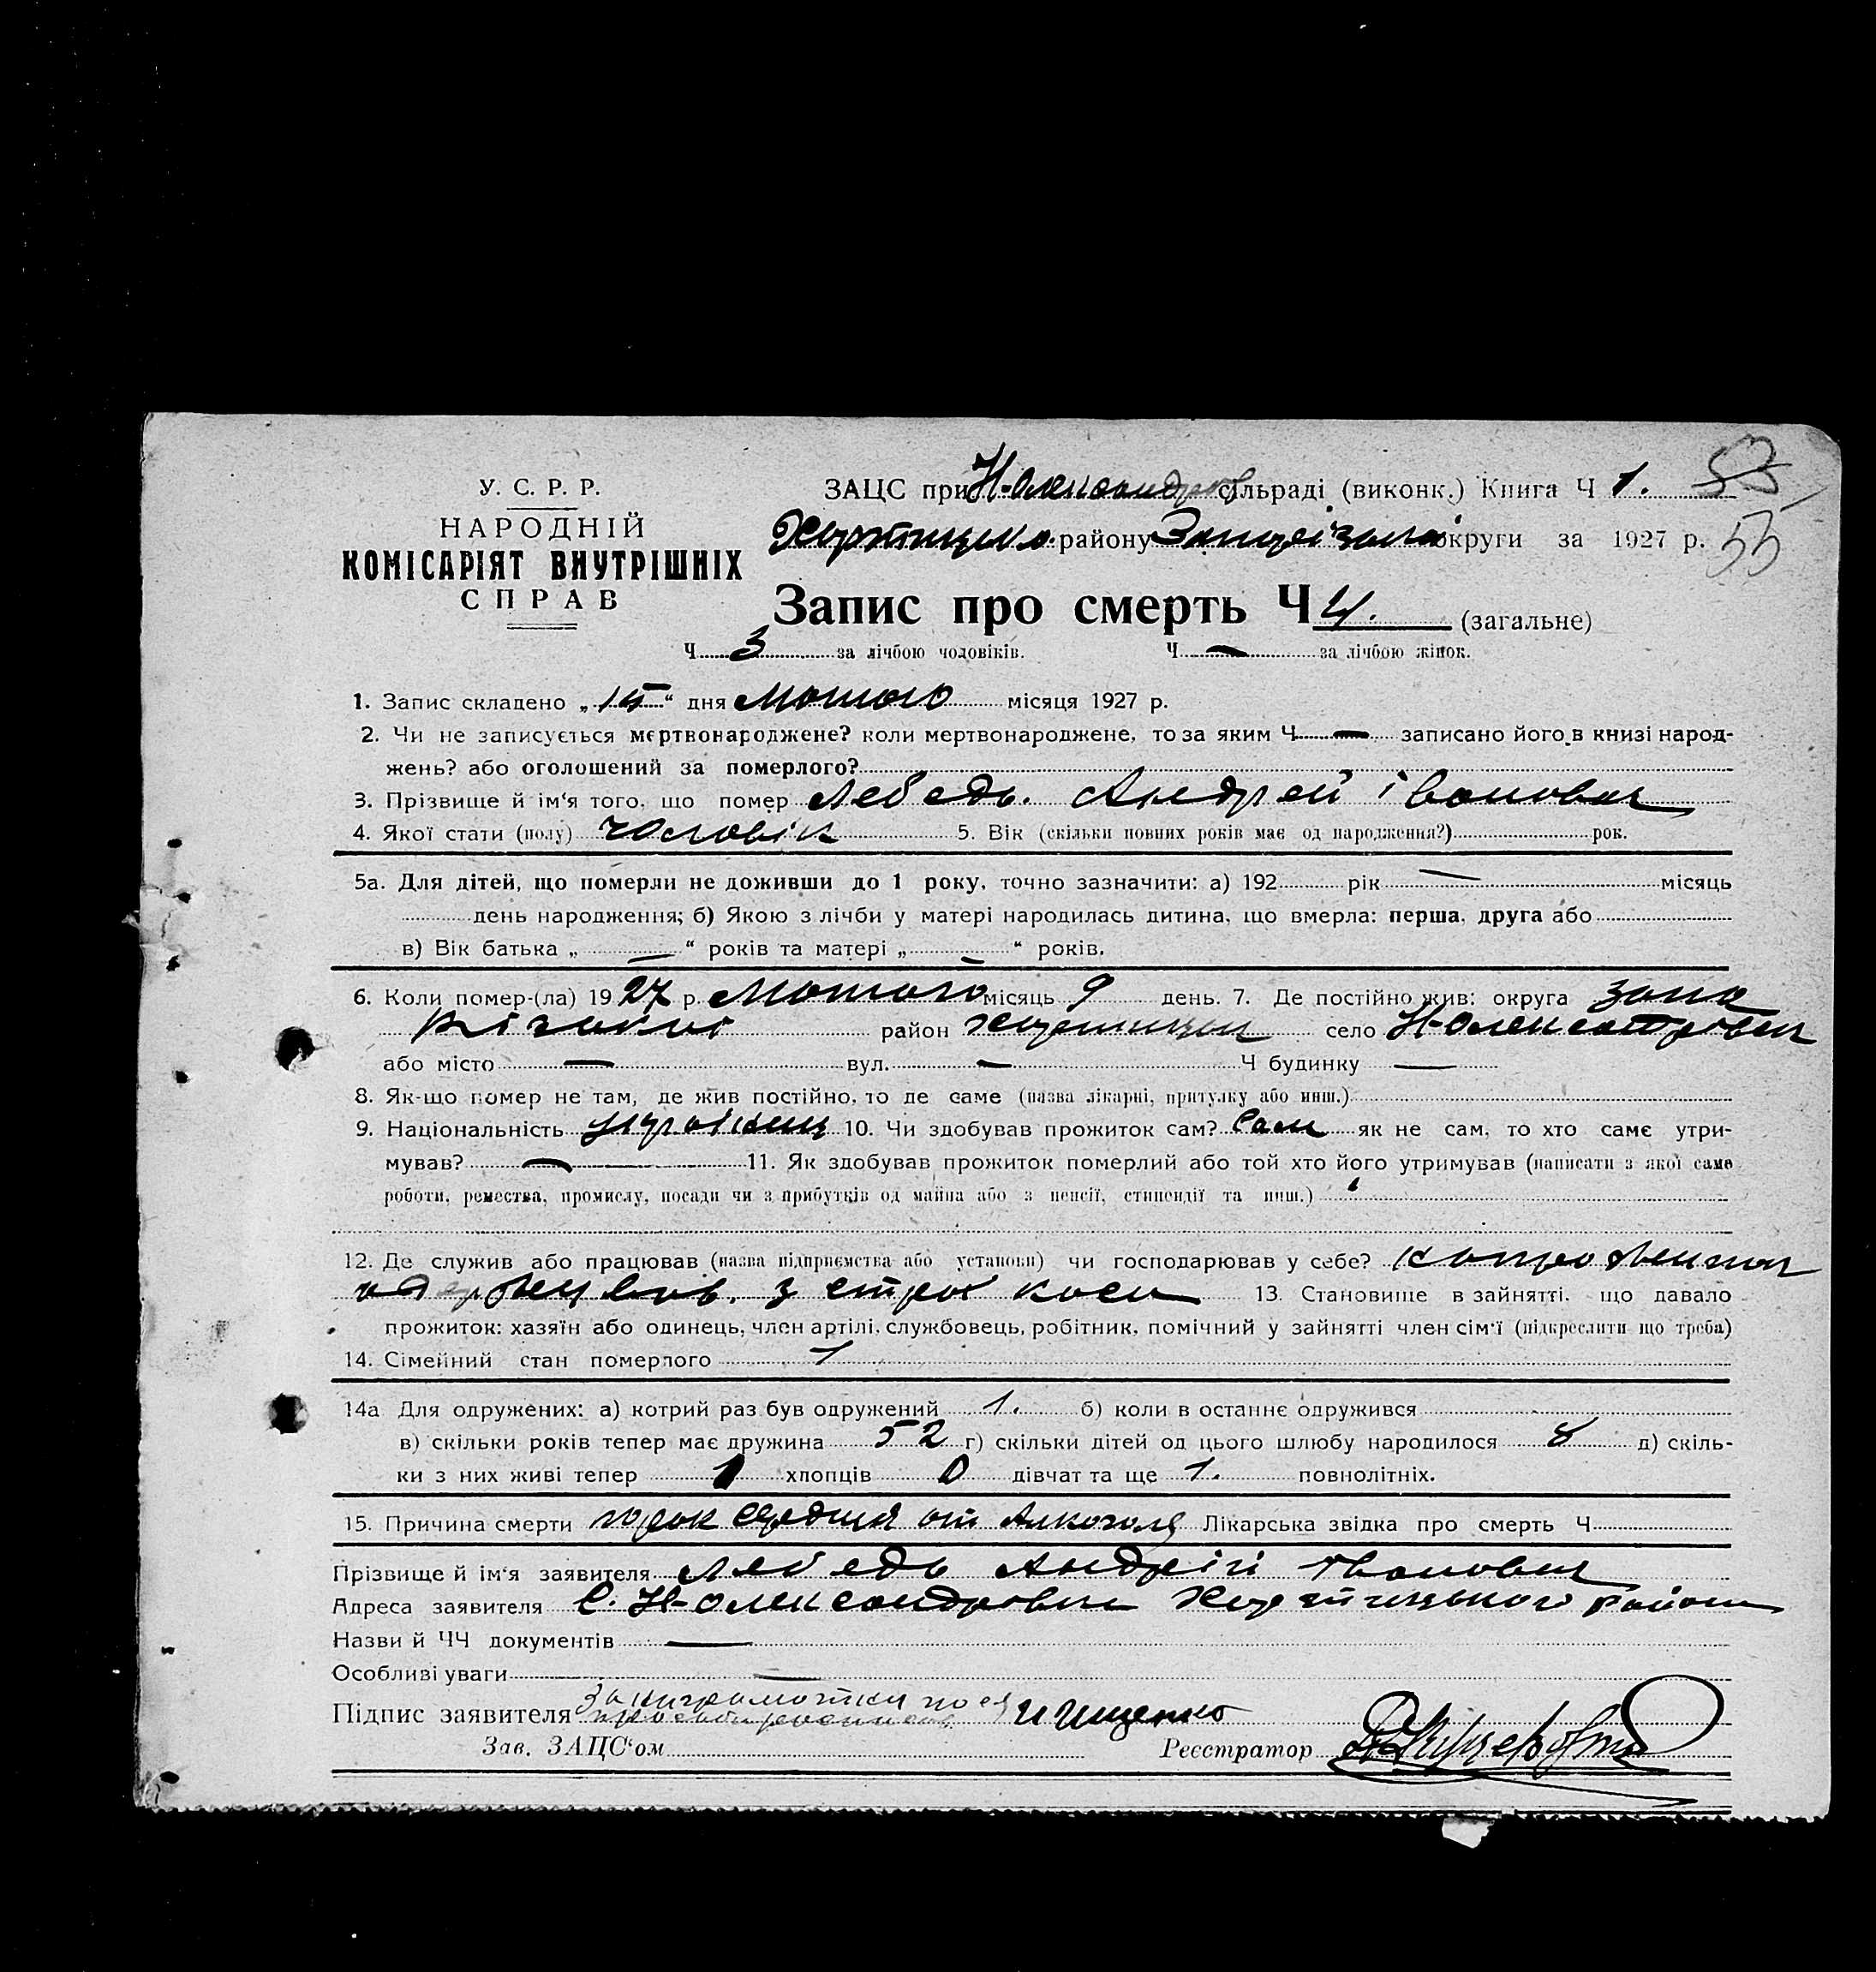 У. С. Р. Р.
НАРОДНІЙ
КОМІСАРІЯТ ВНУТРІШНІХ
СПРАВ
ЗАЦС при Н-Олександров сільраді (виконк.) Книга Ч 1. 53
району округи за 1927 р. 55
Запис про смерть Ч 4. (загальне)
Ч 3 за лічбою чоловіків. Ч — за лічбою жінок.
1. Запис складено „15" дня Лютого місяця 1927 р.
2. Чи не записується мертвонароджене? коли мертвонароджене, то за яким Ч — записано його в книзі народ-
жень? або оголошений за померлого?
3. Прізвище й ім'я того, що помер Лебедь. Андрей Іванович
4. Якої стати (полу) чоловік 5. Вік (скільки повних років має од народження?) рок.
5а. Для дітей, що померли не доживши до 1 року, точно зазначити: а) 192 рік — місяць
день народження; б) Якою з лічби у матері народилась дитина, що вмерла: перша, друга або
в) Вік батька „ — " років та матері „ — " років.
6. Коли помер-(ла) 1927 р. Лютого місяць 9 день. 7. Де постійно жив: округа Запо
різької район село Н-Олександровка
або місто — вул. — Ч будинку —
8. Як-що помер не там, де жив постійно, то де саме (назва лікарні, притулку або инш.)
9. Національність українец 10. Чи здобував прожиток сам? Сам як не сам, то хто саме утри-
мував? — 11. Як здобував прожиток померлий або той хто його утримував (написати з якої саме
роботи, ремества, промислу, посади чи з прибутків од майна або з пенсії, стипендії та инш.)
12. Де служив або працював (назва підприємства або установи) чи господарював у себе?
з коси 13. Становище в зайнятті, що давало
прожиток: хазяїн або одинець, член артілі, службовець, робітник, помічний у зайнятті член сім'ї (підкреслити що треба)
14. Сімейний стан померлого 1
14а Для одружених: а) котрий раз був одружений 1. б) коли в останнє одружився
в) скільки років тепер має дружина 52 г) скільки дітей од цього шлюбу народилося 8 д) скіль-
ки з них живі тепер 1 хлопців 0 дівчат та ще 1. повнолітніх.
15. Причина смерти порок сердця от Алкоголя Лікарська звідка про смерть Ч
Прізвище й ім'я заявителя Лебедь Андрій Іванович
Адреса заявителя С. Н-Олександровка Хортицького району
Назви й ЧЧ документів —
Особливі уваги —
Підпис заявителя Іщенко
Зав. ЗАЦС'ом Реєстратор